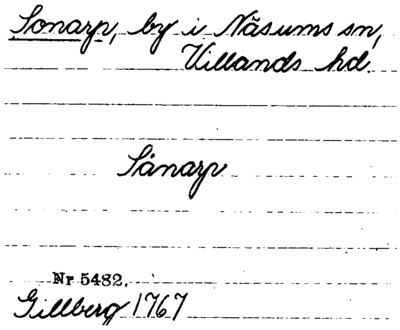 Sonarp, by i Näsums sn,
Villands hd.
Sånarp
Nr 5482.
Gillberg 1767